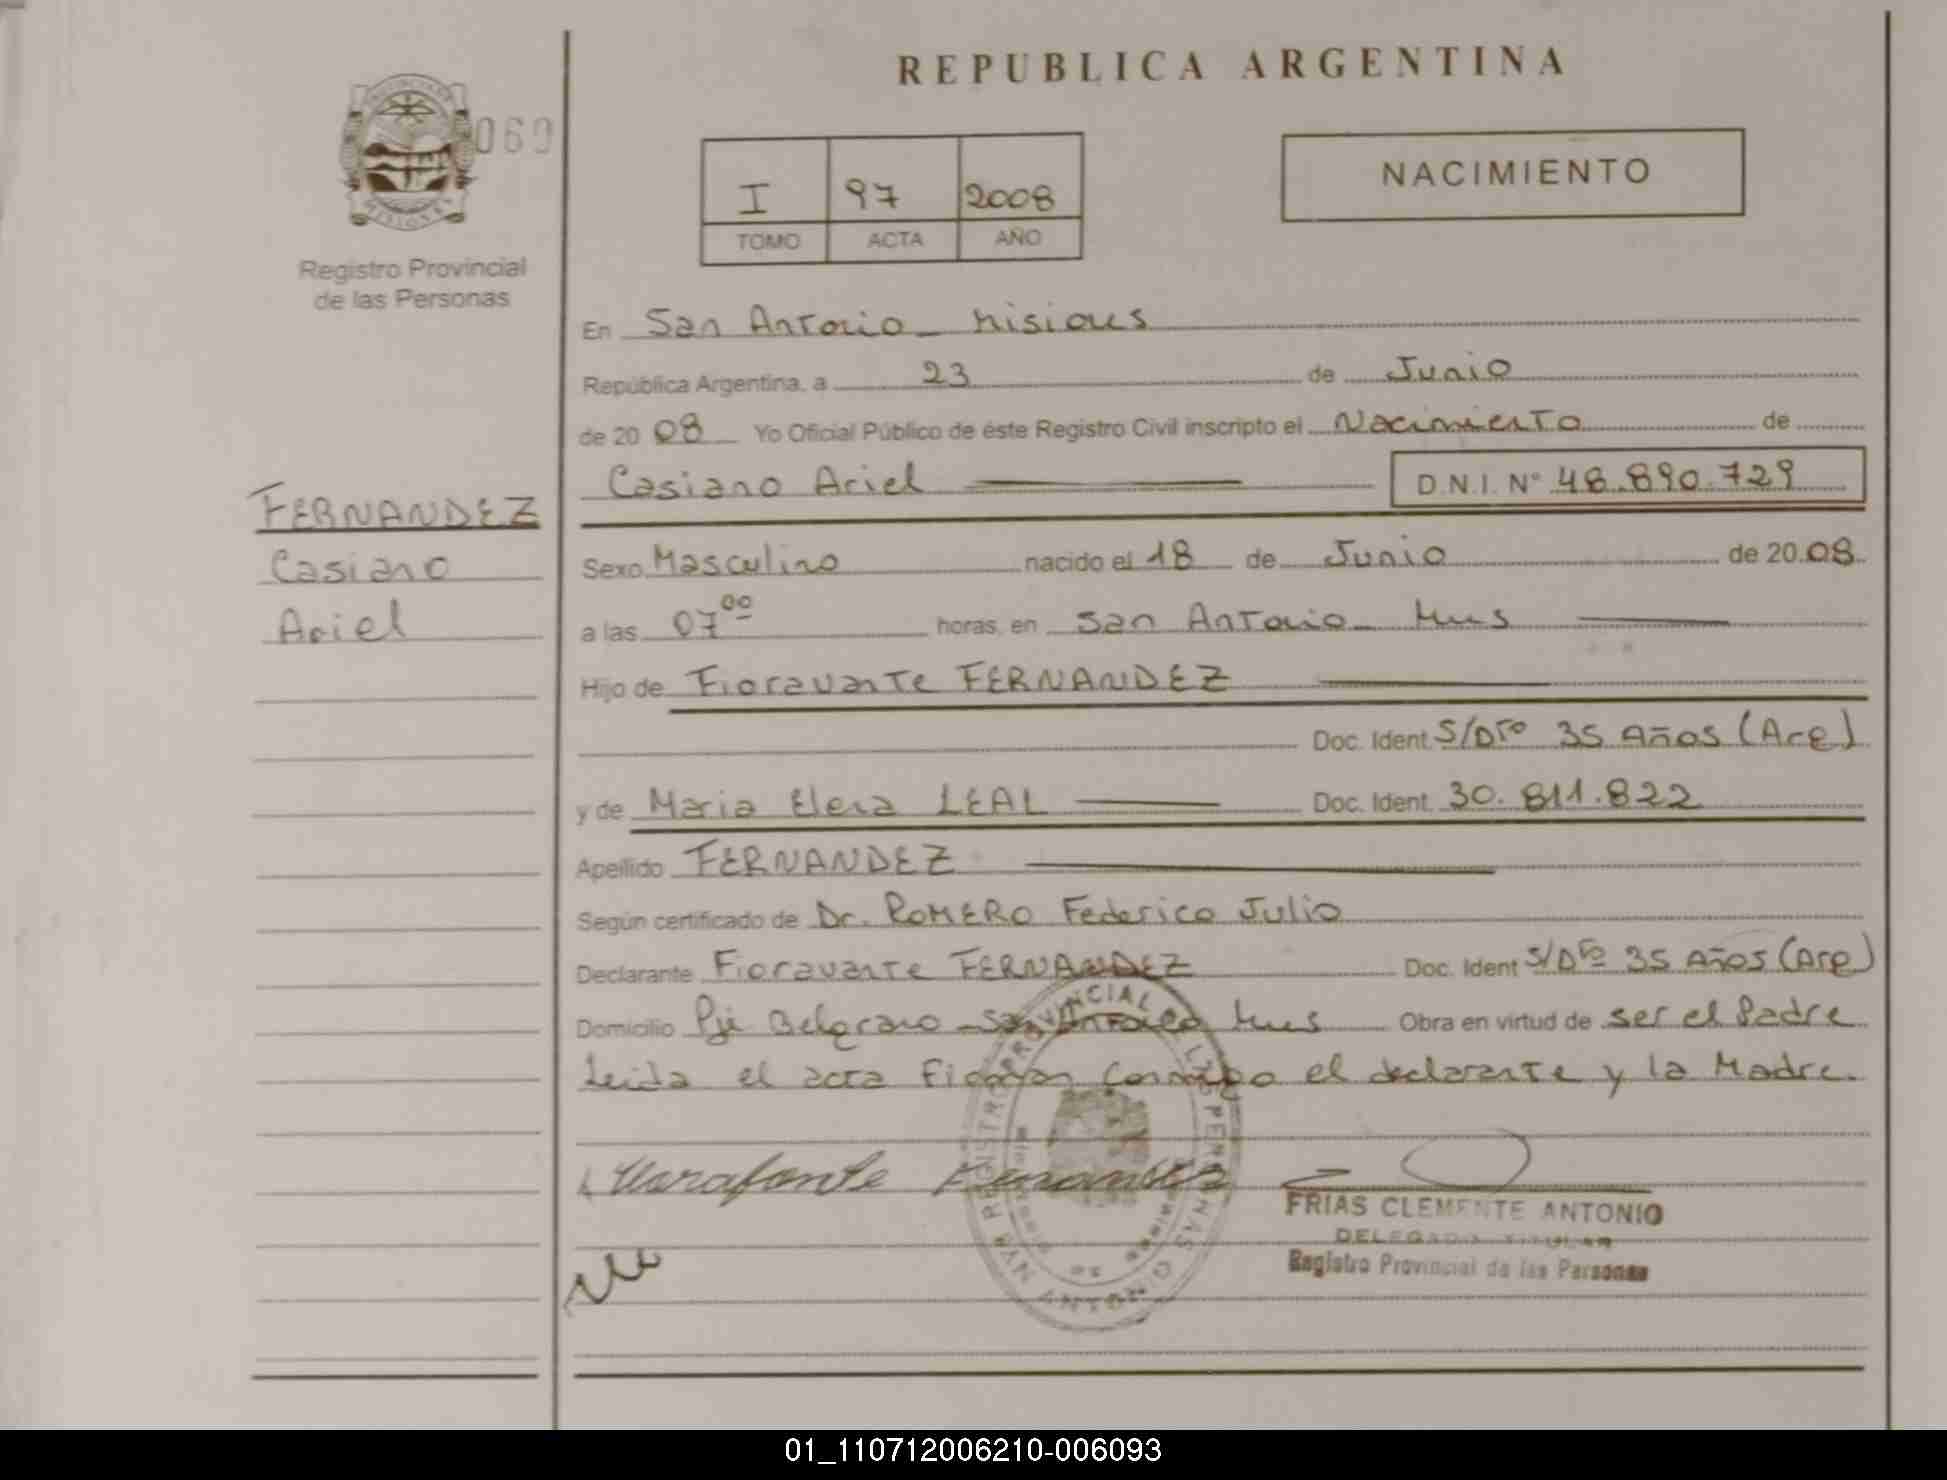 REPUBLICA ARGENTINA
069
PROVINCIA DE
MISIONES
Registro Provincial
de las Personas
I 97 2008
TOMO ACTA AÑO
NACIMIENTO
En San Antonio - Misiones
República Argentina, a 23 de Junio
de 20 08 Yo Oficial Público de éste Registro Civil inscripto el Nacimiento de
Casiano Ariel D.N.I. Nº 48.890.729
FERNANDEZ
Casiano
Ariel
Sexo Masculino nacido el 18 de Junio de 20.08
a las 07 00 horas, en San Antonio - Mnes
Hijo de Fioravante FERNANDEZ
Doc. Ident. S/Dto 35 Años (Arg)
y de Maria Elena LEAL Doc. Ident. 30.811.822
Apellido FERNANDEZ
Según certificado de Dr. ROMERO Federico Julio
Declarante Fioravante FERNANDEZ Doc. Ident S/Dto 35 Años (Arg)
Domicilio Pje Belgrano - San Antonio Mnes Obra en virtud de ser el Padre
Leida el acta Firman Conmigo el declarante y la Madre.
FRIAS CLEMENTE ANTONIO
DELEGADO TITULAR
Registro Provincial de las Personas
01_110712006210-006093